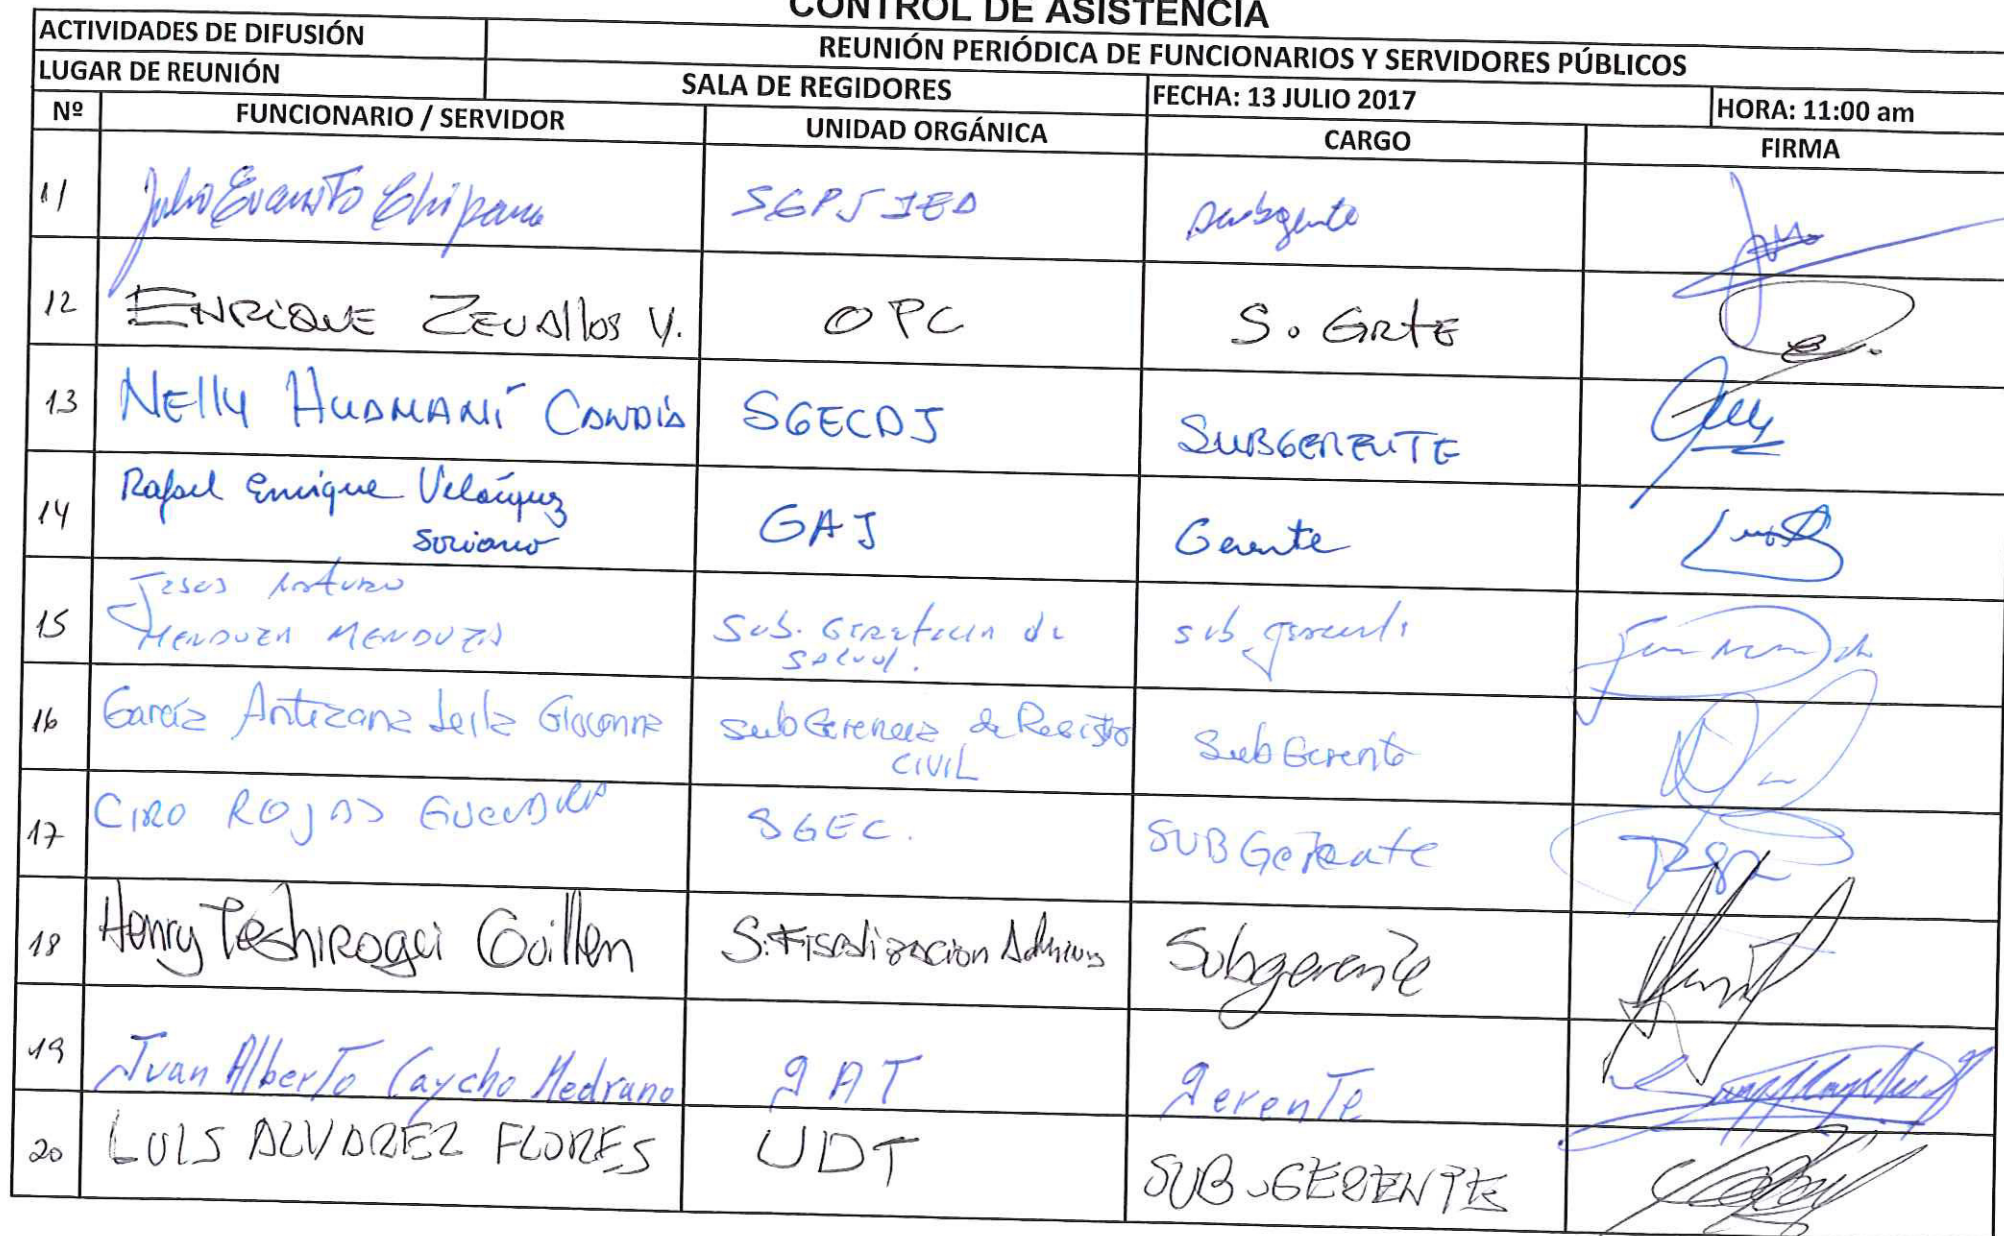 CONTROL DE ASISTENCIA
ACTIVIDADES DE DIFUSIÓN REUNIÓN PERIÓDICA DE FUNCIONARIOS Y SERVIDORES PÚBLICOS
LUGAR DE REUNIÓN SALA DE REGIDORES FECHA: 13 JULIO 2017 HORA: 11:00 am
Nº FUNCIONARIO / SERVIDOR UNIDAD ORGÁNICA CARGO FIRMA
11 Julio Evaristo Chipana SGPSIED Subgente
12 ENRIQUE ZEVAllos V. OPC S. GRTE
13 NElly HUAMANÍ CANDIA SGECDJ SUBGERENTE
14 Rafael Enrique Velásquez GAJ Gerente
Soriano
15 Jesus Arturo
MENDOZA MENDOZA Sub. Gerencia de sub gerente
Salud.
16 García Antezana Leila Gioconna SubGerencia de Registro SubGerente
CIVIL
17 CIRO ROJAS GUEVARA SGEC. SUBGerente
18 Henry Teshirogui Guillen S. Fiscalizacion Subgerente
19 Juan Alberto Caycho Medrano GAT Gerente
20 LUIS ALVAREZ FLORES UDT SUB-GERENTE